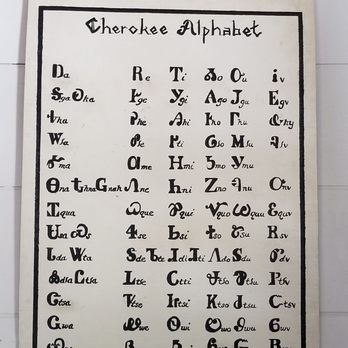 Cherokee Alphabet
Ꭰa Ꭱe Ꭲi Ꭳo Ꭴu Ꭵv
Ꭶga Ꭷka Ꭸge Ꭹgi Ꭺgo Ꭻgu Ꭼgv
Ꭽha Ꭾhe Ꭿhi Ꮀho Ꮁhu Ꮂhv
Ꮃla Ꮄle Ꮅli Ꮆlo Ꮇlu Ꮈlv
Ꮉma Ꮊme Ꮋmi Ꮌmo Ꮍmu
Ꮎna Ꮏhna Ꮐnah Ꮑne Ꮒni Ꮓno Ꮔnu Ꮕnv
Ꮖqua Ꮗque Ꮘqui Ꮙquo Ꮚquu Ꮛquv
Ꮜsa Ꮝs Ꮞse Ꮟsi Ꮠso Ꮡsu Ꮢsv
Ꮣda Ꮤta Ꮥde Ꮦte Ꮧdi Ꮨti Ꮩdo Ꮪdu Ꮫdv
Ꮳtsa Ꮴtse Ꮵtsi Ꮶtso Ꮷtsu Ꮸtsv
Ꮹwa Ꮺwe Ꮻwi Ꮼwo Ꮽwu Ꮾwv